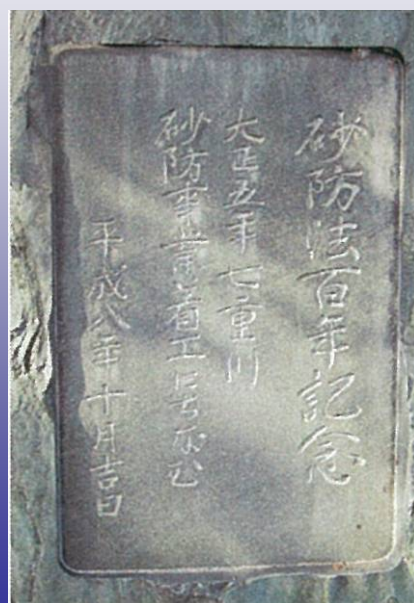 砂防法百年記念
大正五年七重川
砂防事業着工にちなむ
平成八年十月吉日